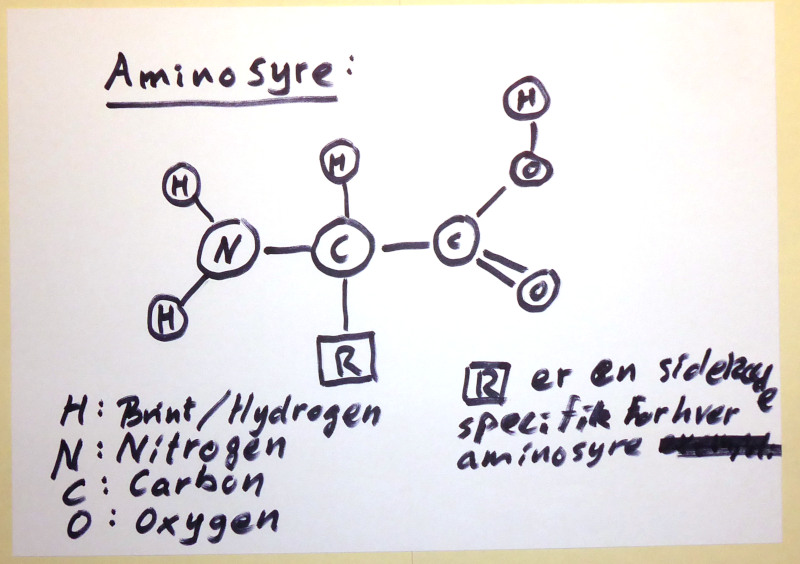 Aminosyre:
H
H
H
O
N
C
C
H
O
R
R er en sidekæde
specifik for hver
aminosyre
H: Brint/Hydrogen
N: Nitrogen
C: Carbon
O: Oxygen